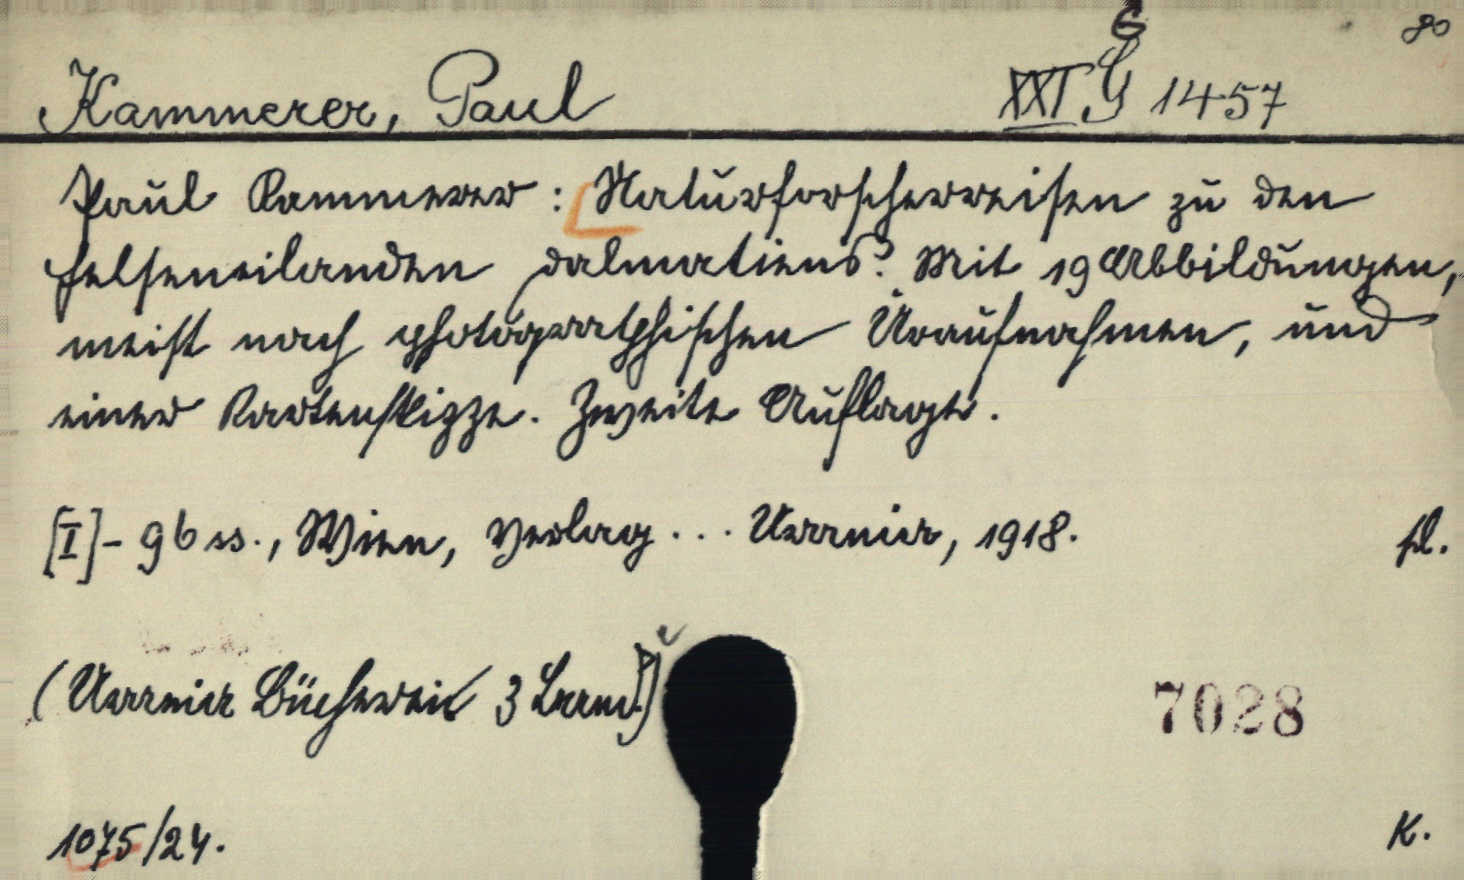 G
80
Kammerer, Paul XXI G 1457
Paul Kammerer: Naturforscherreisen zu den
Felseneilanden Dalmatiens. Mit 19 Abbildungen,
meist nach photographischen Uraufnahmen, und
einer Kartenskizze. Zweite Auflage.
[I]-96 ss., Wien, Verlag ... Urania, 1918. fl.
(Urania Bücherei 3 Band)
7028
1075/24. K.